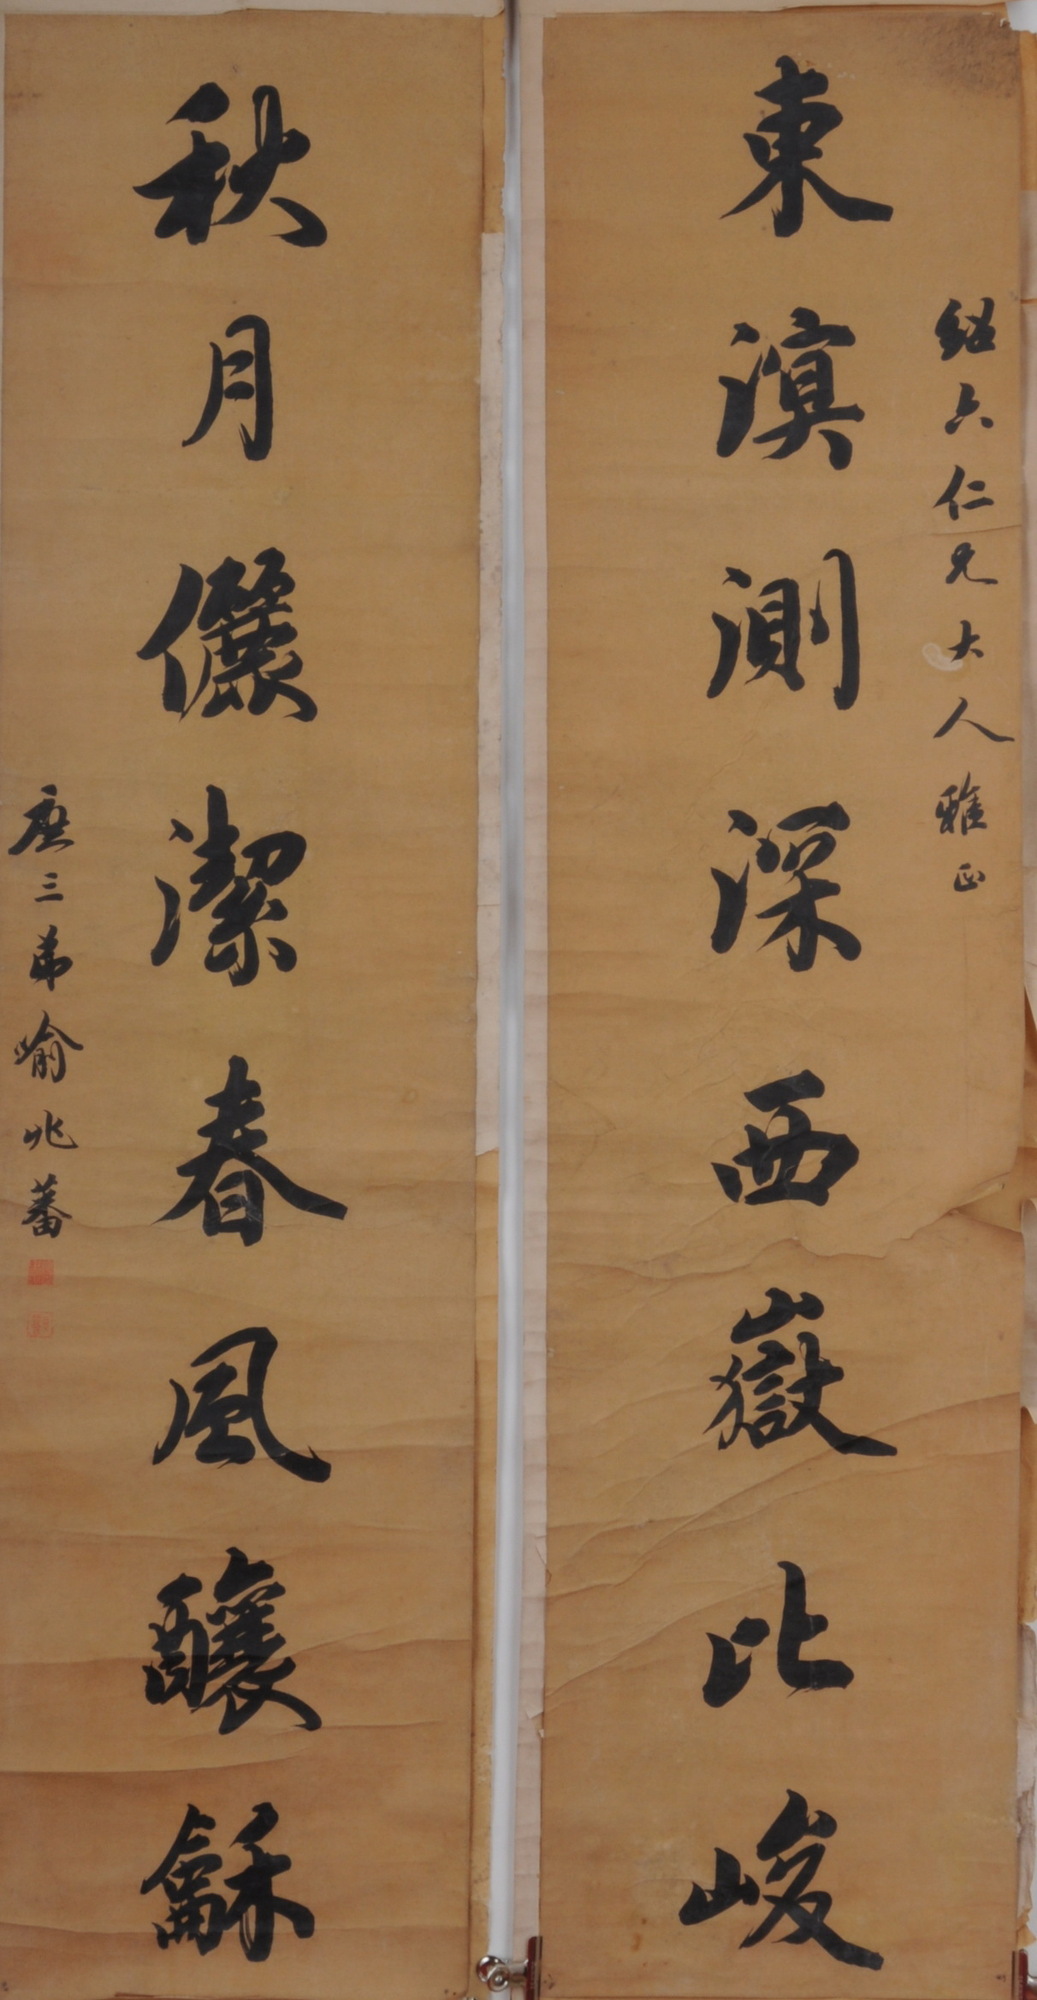 紹六仁兄大人雅正
東溟測深西嶽比峻
秋月儷潔春風釀龢
庶三弟喻兆蕃